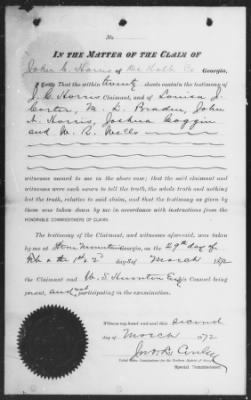 No.
IN THE MATTER OF THE CLAIM OF
John C. Harris of De Kalb Co Georgia,
I Certify That the within twenty sheets contains the testimony of
J. C. Harris Claimant, and of Louisa J.
Carter, M. L. Braden, John
A. Harris, Joshua Goggin
and W. R. Wells
witnesses named to me in the above case; that the said claimant and
witnesses were each sworn to tell the truth, the whole truth and nothing
but the truth, relative to said claim, and that the testimony as given by
them was taken down by me in accordance with instructions from the
HONORABLE COMMISSIONERS OF CLAIMS.
The testimony of the Claimant, and witnesses aforesaid, was taken
by me at Stone Mountain Georgia, on the 29th day of
Feb & the 1st & 2d day of March 1872
the Claimant and W. S. Thurston Esq's Counsel being
present, and not participating in the examination.
Witness my hand and seal this second
day of March 1872
Special Commissioner.